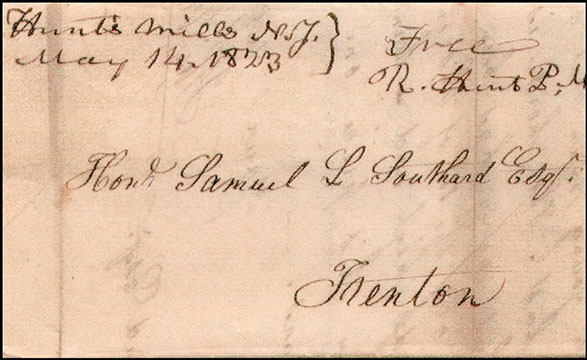 Hunt's Mills N.J.
May 14. 1823
Free
R. Hunt P. M
Hond. Samuel L Southard Esqr.
Trenton